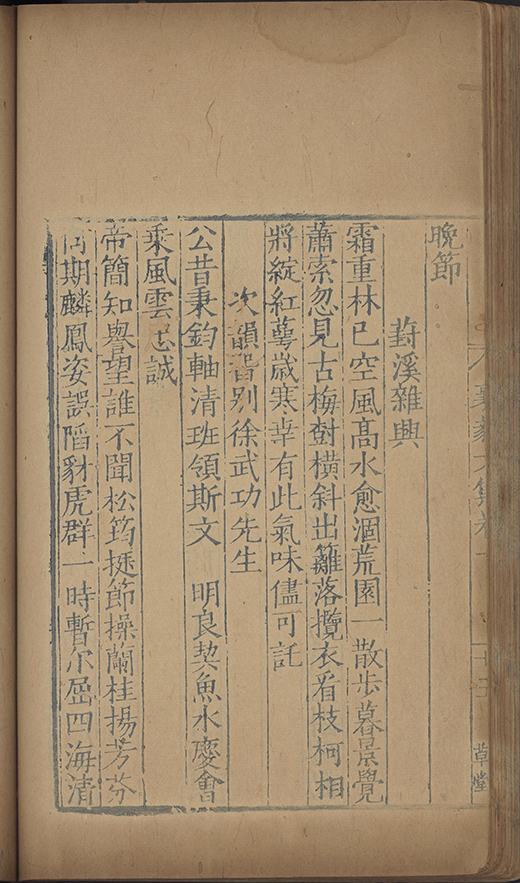 晚節
葑溪雜興
霜重林已空風高水愈涸荒園一散步暮景覺
蕭索忽見古梅樹橫斜出籬落攬衣看枝柯相
將綻紅萼歲寒幸有此氣味儘可託
次韻留别徐武功先生
公昔秉鈞軸清班領斯文 明良契魚水慶會
乗風雲忠誠
帝簡知譽望誰不聞松筠挺節操蘭桂揚芳芬
何期麟鳳姿誤陷豺虎群一時暫尔屈四海清
草堂